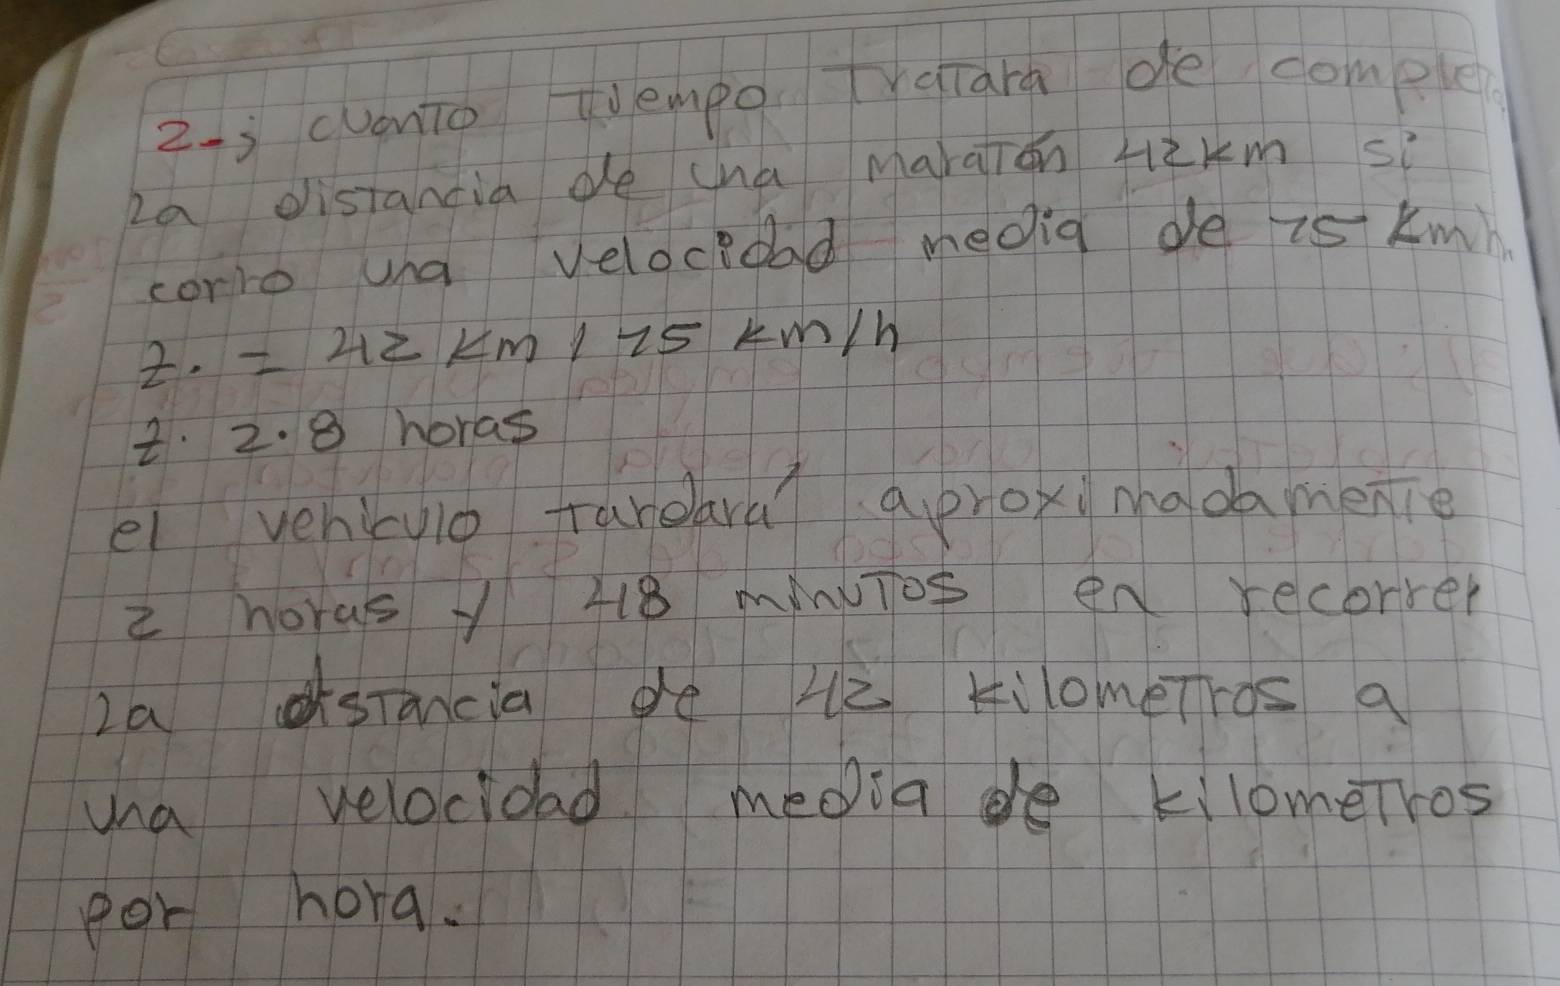 2-¿ cuanto tiempo Tratara de completa
la distancia de una maratón 42km si
corro una velocidad media de 15 kmh.
t. = 42 km / 15 km/h
t. 2.8 horas
el vehiculo tardará aproximadamente
2 horas y 48 minutos en recorrer
la distancia de 42 kilometros a
una velocidad media de kilometros
por hora.